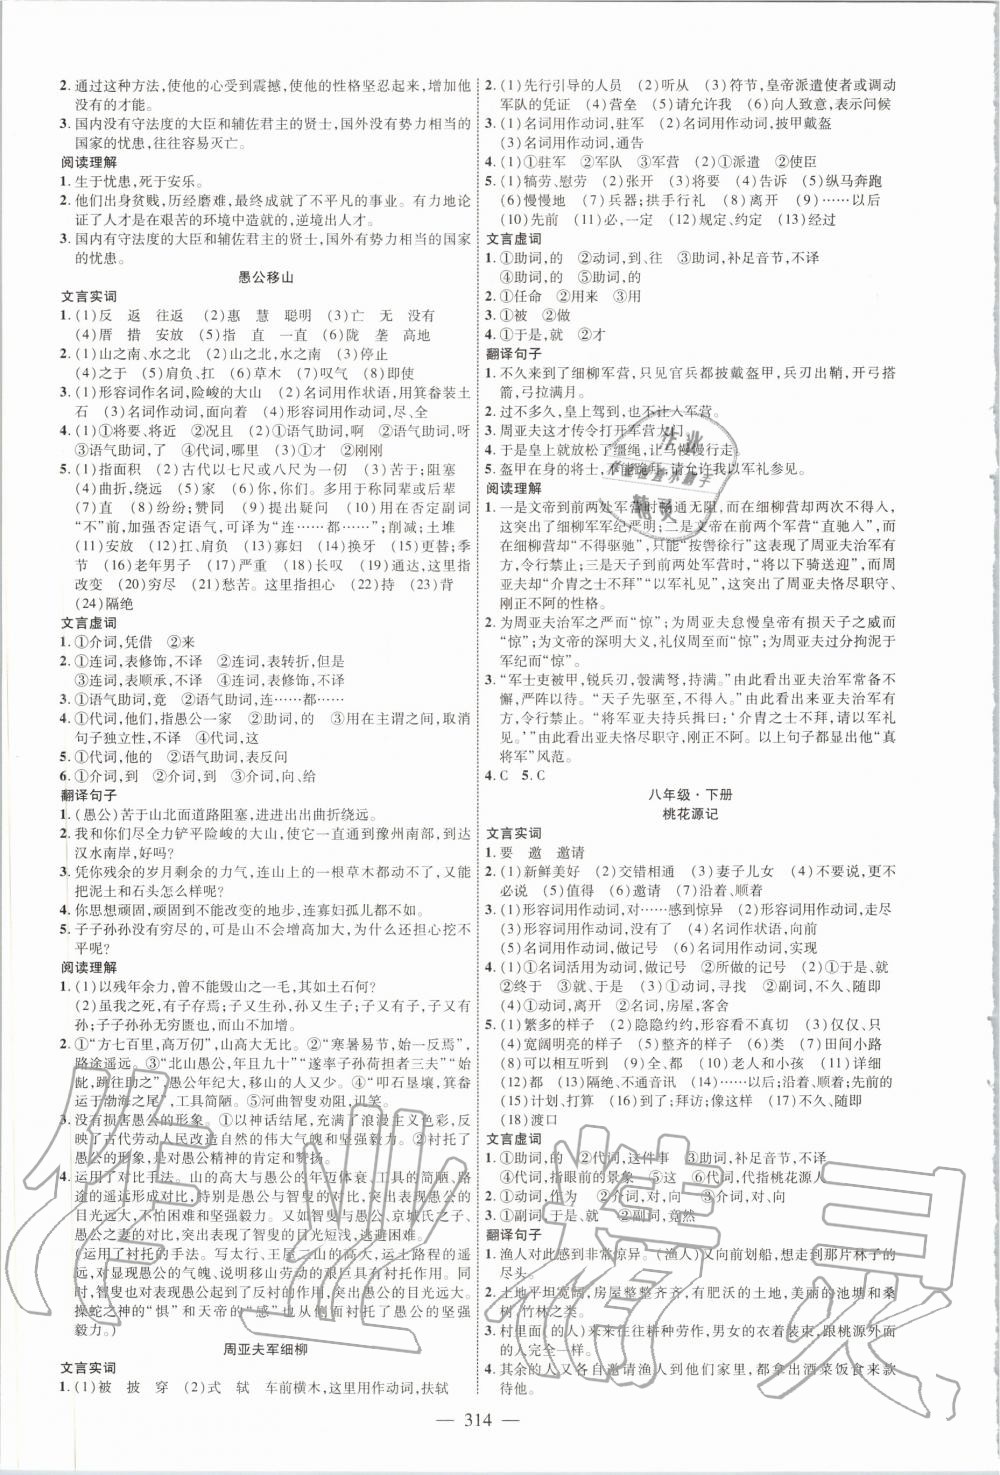 2. 通过这种方法,使他的心受到震撼,使他的性格坚忍起来,增加他
没有的才能。
3. 国内没有守法度的大臣和辅佐君主的贤士,国外没有势力相当的
国家的忧患,往往容易灭亡。
阅读理解
1. 生于忧患,死于安乐。
2. 他们出身贫贱,历经磨难,最终成就了不平凡的事业。有力地论
证了人才是在艰苦的环境中造就的,逆境出人才。
3. 国内有守法度的大臣和辅佐君主的贤士,国外有势力相当的国家
的忧患。
愚公移山
文言实词
1. (1)反 返 往返 (2)惠 慧 聪明 (3)亡 无 没有
(4)厝 措 安放 (5)指 直 一直 (6)陇 垄 高地
2. (1)山之南、水之北 (2)山之北,水之南 (3)停止
(4)之于 (5)肩负、扛 (6)草木 (7)叹气 (8)即使
3. (1)形容词作名词,险峻的大山 (2)名词用作状语,用箕畚装土
石 (3)名词作动词,面向 (4)形容词用作动词,尽、全
4. (1)①将要、将近 ②况且 (2)①语气助词,啊 ②语气助词,呀
③语气助词,了 ④代词,哪里 (3)①才 ②刚刚
5. (1)指面积 (2)古代以七尺或八尺为一仞 (3)苦于;阻塞
(4)曲折,绕远 (5)家 (6)你,你们。多用于称同辈或后辈
(7)直 (8)纷纷;赞同 (9)提出疑问 (10)用在否定副词
“不”前,加强否定语气,可译为“连……都……”;削减;土堆
(11)安放 (12)扛、肩负 (13)寡妇 (14)换牙 (15)更替;季
节 (16)老年男子 (17)严重 (18)长叹 (19)通达,这里指
改变 (20)穷尽 (21)愁苦。这里指担心 (22)告诉 (23)背
(24)隔绝
文言虚词
1. ①介词,凭借 ②来
2. ①连词,表修饰,不译 ②连词,表转折,但是
③连词,表顺承,不译 ④连词,表修饰,不译
3. ①语气助词,竟 ②语气助词,连……都……
4. ①代词,他们,指愚公一家 ②助词,的 ③用在主谓之间,取消
句子独立性,不译 ④代词,这
5. ①代词,他的 ②语气助词,表反问
6. ①介词,到 ②介词,到 ③介词,向、给
翻译句子
1. (愚公)苦于山北面道路阻塞,进进出出曲折绕远。
2. 我和你们尽全力铲平险峻的大山,使它一直通到豫州南部,到达
汉水南岸,好吗?
3. 凭你残余的岁月剩余的力气,连山上的一根草木都动不了,又能
把泥土和石头怎么样呢?
4. 你思想顽固,顽固到不能改变的地步,连寡妇孤儿都不如。
5. 子子孙孙没有穷尽的,可是山不会增高加大,为什么还担心挖不
平呢?
阅读理解
1. (1)以残年余力,曾不能毁山之一毛,其如土石何?
(2)虽我之死,有子存焉;子又生孙,孙又生子;子又有子,子又有
孙;子子孙孙无穷匮也,而山不加增。
2. ①“方七百里,高万仞”,山高大无比。②“寒暑易节,始一反焉”,
路途遥远。③“北山愚公,年且九十”“遂率子孙荷担者三夫”“始龀,
跳往助之”,愚公年纪大,移山的人又少。④“叩石垦壤,箕畚
运于渤海之尾”,工具简陋。⑤河曲智叟劝阻、讥笑。
3. 没有损害愚公的形象。①以神话结尾,充满了浪漫主义色彩,反
映了古代劳动人民改造自然的伟大气魄和坚强毅力。②衬托了
愚公的形象,是对愚公精神的肯定和赞扬。
4. 运用了对比手法。以太行、王屋二山的高大与愚公的年迈体衰、工具的简陋、路
途的遥远形成对比,特别是愚公与智叟的对比,表现了愚公的
目光远大,不怕困难。相反,又如智叟与愚公、京城氏之子、
愚公之妻的对比,表现了智叟的目光短浅、逃避困难。
(运用了衬托的手法。写太行、王屋二山的高大,运土路程的遥
远,对显现愚公的气魄、说明移山劳动的艰巨具有衬托作用。同
时,智叟的形象对愚公起到了反衬的作用,表现愚公的目光远大。
操蛇之神的“惧”和天帝的“感”也从侧面衬托了愚公的坚强
毅力。)
周亚夫军细柳
文言实词
1. (1)被 披 穿 (2)式 轼 车前横木,这里用作动词,扶轼
2. (1)先行引导的人员 (2)听从 (3)符节,皇帝派遣使者或调动
军队的凭证 (4)营垒 (5)请允许我 (6)向人致意,表示问候
3. (1)名词用作动词,驻军 (2)名词用作动词,披甲戴盔
(3)名词用作动词,通告
4. (1)①驻军 ②军队 ③军营 (2)①派遣 ②使臣
5. (1)犒劳、慰劳 (2)张开 (3)将要 (4)告诉 (5)纵马奔跑
(6)慢慢地 (7)兵器;拱手行礼 (8)离开 (9)……以后
(10)先前 (11)必,一定 (12)规定、约定 (13)经过
文言虚词
1. ①助词,的 ②动词,到、往 ③助词,补足音节,不译
④助词,的 ⑤助词,的
2. ①任命 ②用来 ③用
3. ①被 ②做
4. ①于是,就 ②才
翻译句子
1. 不久来到了细柳军营,只见官兵都披戴盔甲,兵刃出鞘,开弓搭
箭,弓拉满月。
2. 过不多久,皇上驾到,也不让入军营。
3. 周亚夫才传令打开军营大门。
4. 于是皇上就放松了缰绳,让马慢慢行走。
5. 盔甲在身的将士,不能跪拜,请允许我以军礼参见。
阅读理解
1. 一是文帝到前两处军营时畅通无阻,而在细柳营却不得入,
这突出了细柳军军纪严明;二是文帝在前两个军营“直驰入”,
而在细柳营却“不得驱驰”,只能“按辔徐行”这突出了周亚夫治军有
方,令行禁止;三是天子到前两处军营时,“将以下骑送迎”,而
周亚夫却“介胄之士不拜”“以军礼见”,这突出了周亚夫恪尽职守、
刚正不阿的性格。
2. 为周亚夫治军之严而“惊”;为周亚夫怠慢皇帝有损天子之威而
“惊”;为文帝的深明大义,礼仪周至而“惊”;为周亚夫过分拘泥于
军纪而“惊”。
3. “军士吏被甲,锐兵刃,彀弓弩,持满。”由此看出亚夫治军常备不
懈,严阵以待。“天子先驱至,不得入。”由此看出来亚夫治军有
方,令行禁止。“将军亚夫持兵揖曰:‘介胄之士不拜,请以军礼
见。’”由此看出亚夫恪尽职守、刚正不阿。以上句子都显出亚夫“真
将军”风范。
4. C 5. C
八年级·下册
桃花源记
文言实词
1. 要 邀 邀请
2. (1)新鲜美好 (2)交错相通 (3)妻子儿女 (4)不要说,更不
必说 (5)值得 (6)邀请 (7)沿着、顺着
3. (1)形容词用作动词,对……感到惊异 (2)形容词用作动词,走尽
(3)形容词用作动词,备办 (4)名词作状语,向前
(5)名词用作动词,做记号 (6)名词用作动词,实现
4. (1)①名词活用为动词,做记号 ②所做的记号 (2)①于是、就
②终于 ③就、于是 (3)①动词,寻找 ②副词,不久、随即
(4)①动词,离开 ②名词,房屋,客舍
5. (1)繁多的样子 (2)隐隐约约,形容看不真切 (3)仅仅、只
(4)宽阔明亮的样子 (5)整齐的样子 (6)类 (7)田间小路
(8)可以相互听到 (9)全、都 (10)老人和小孩 (11)详细
(12)都 (13)隔绝、不通音讯 (14)感叹、惋惜
(15)计划、打算 (16)到了;拜访;像这样 (17)不久
(18)渡口
文言虚词
1. ①助词,的 ②代词,这件事 ③助词,不译
④代词,指眼前的景色 ⑤这 ⑥代词,代指桃花源人
2. ①动词,作为 ②介词,对、向 ③介词,对、向
3. ①副词,于是、就 ②副词,竟然
翻译句子
1. 渔人对此感到非常惊异。(渔人)又向前划船,想走到那片林子的
尽头。
2. 土地平坦宽阔,房屋整整齐齐,有肥沃的土地,美丽的池塘和桑
树、竹林之类。
3. 村里面(的人)来来往往耕种劳作,男女的衣着装束,跟桃源外面
的人完全一样。
4. 其余的人又各自邀请渔人到他们家里,都拿出酒菜饭食来款
待他。
— 314 —